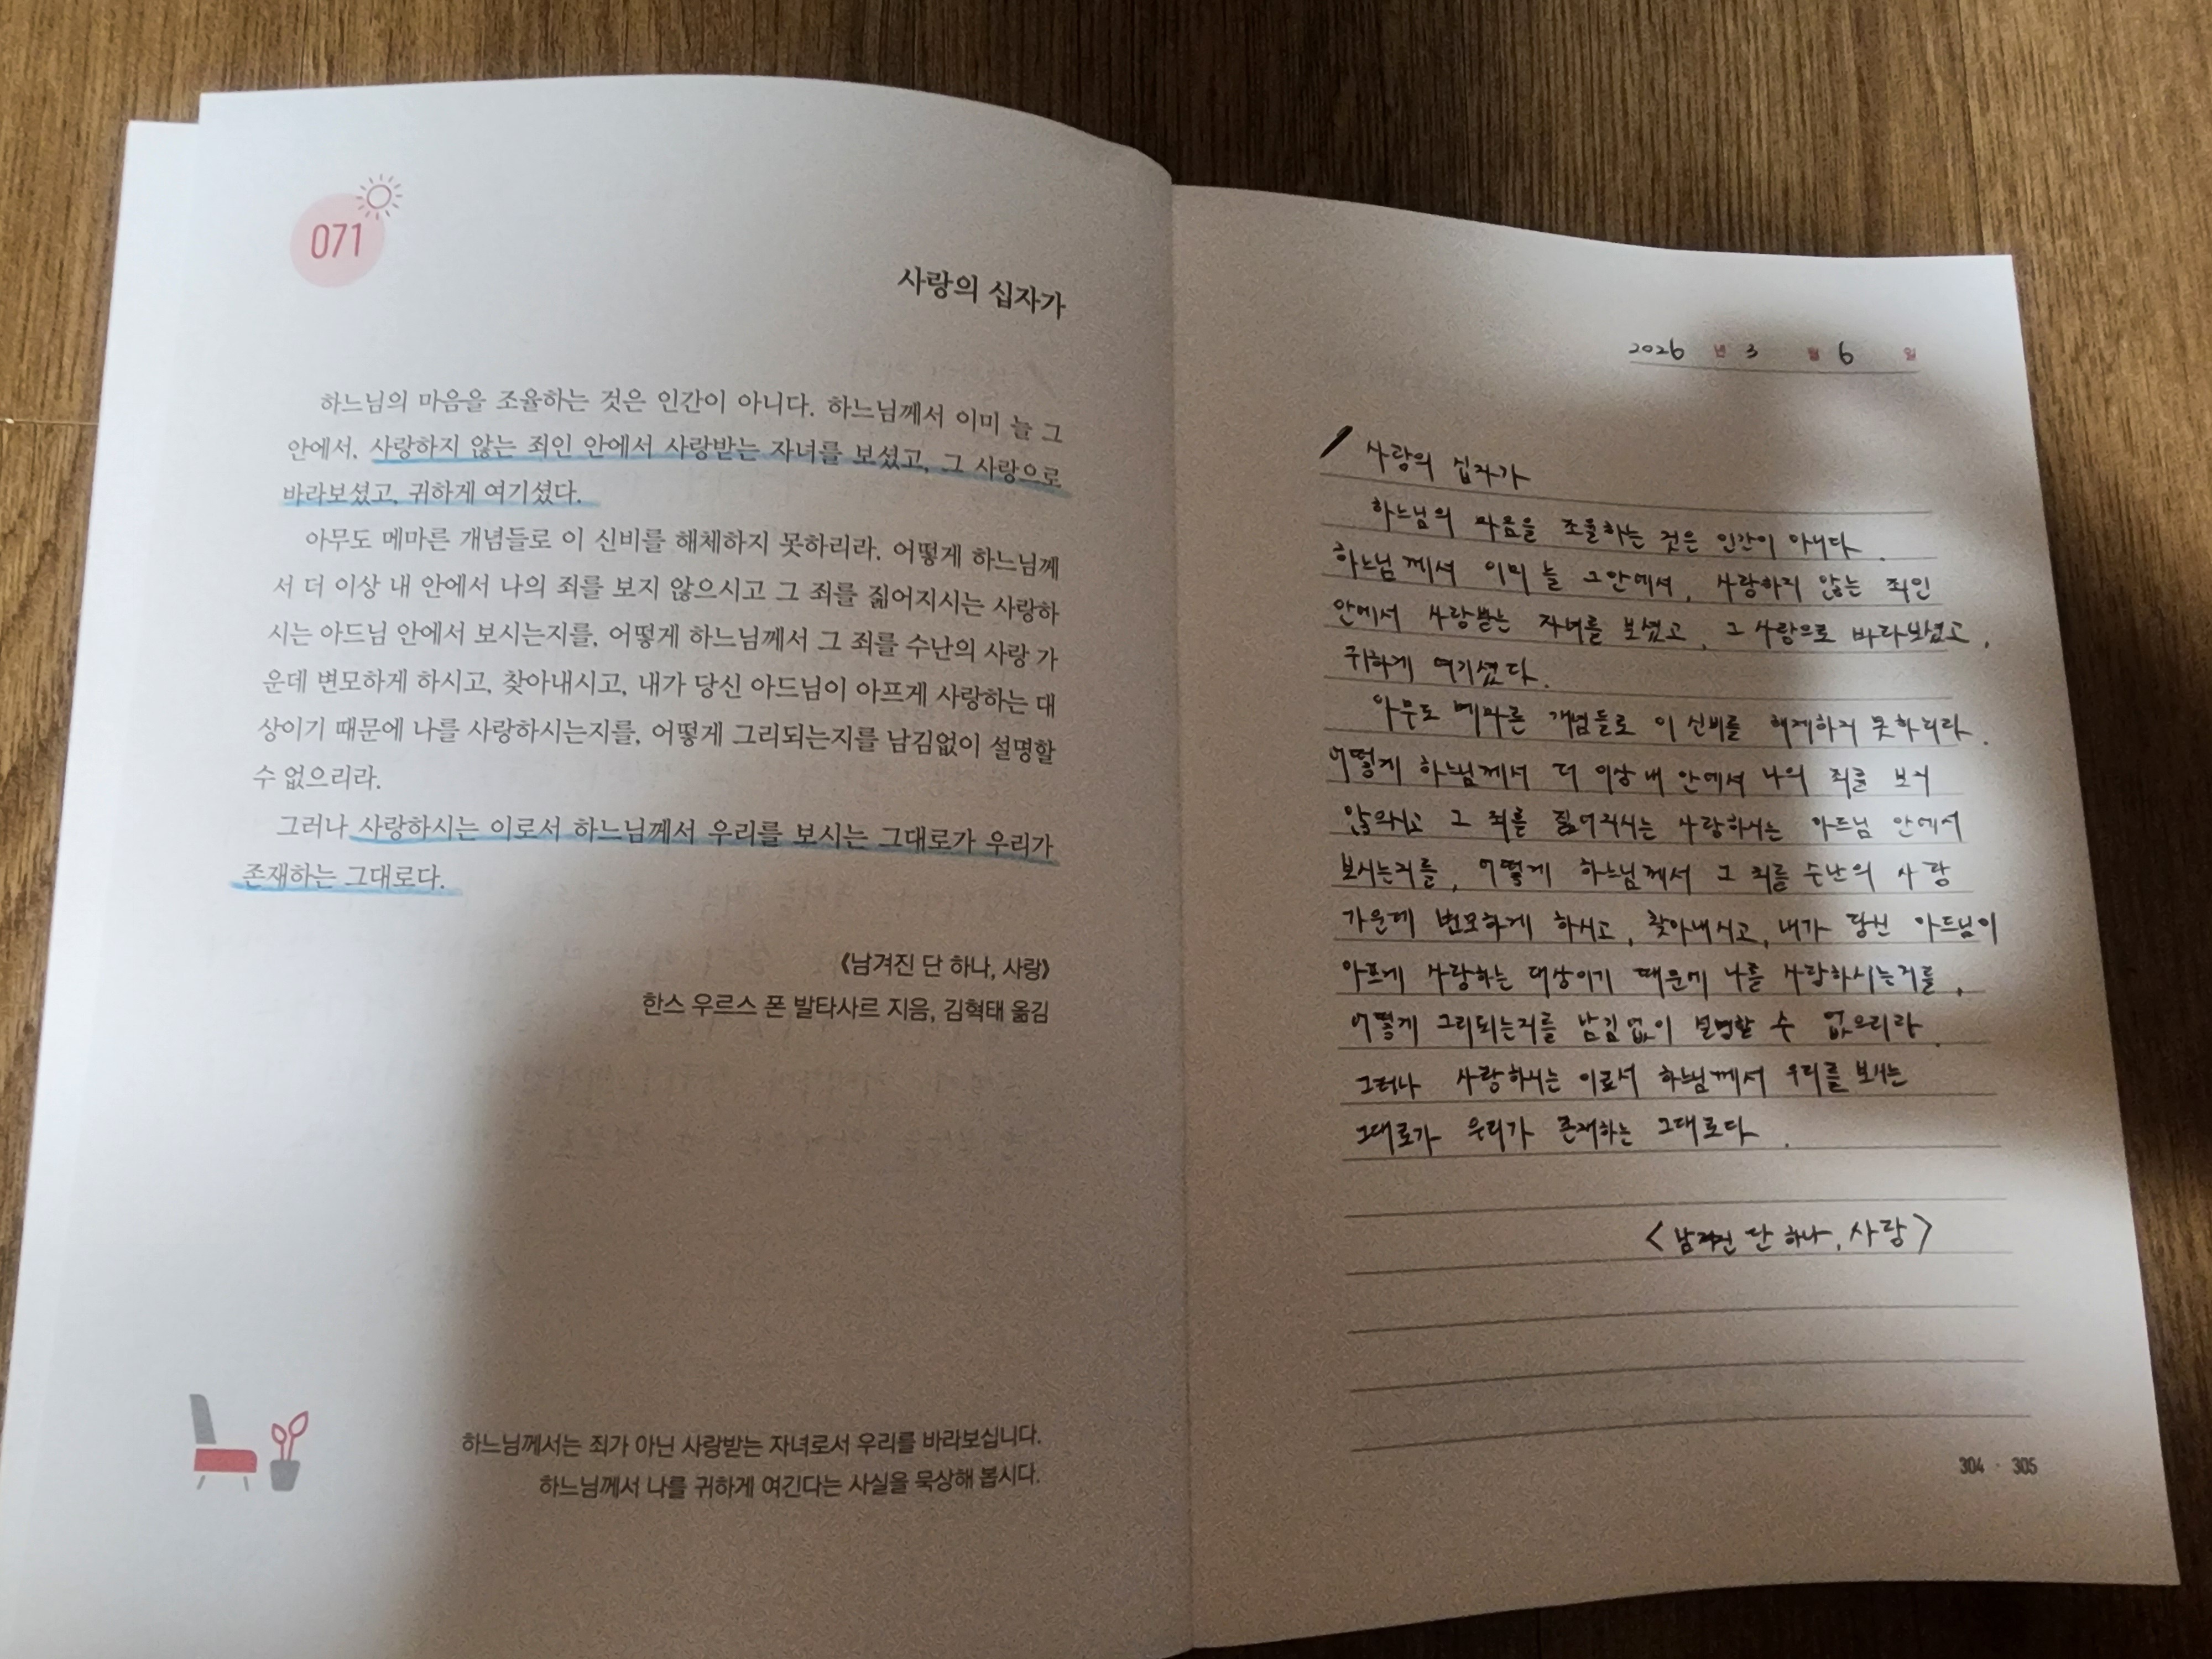 071
사랑의 십자가
하느님의 마음을 조율하는 것은 인간이 아니다. 하느님께서 이미 늘 그
안에서, 사랑하지 않는 죄인 안에서 사랑받는 자녀를 보셨고, 그 사랑으로
바라보셨고, 귀하게 여기셨다.
아무도 메마른 개념들로 이 신비를 해체하지 못하리라. 어떻게 하느님께
서 더 이상 내 안에서 나의 죄를 보지 않으시고 그 죄를 짊어지시는 사랑하
시는 아드님 안에서 보시는지를, 어떻게 하느님께서 그 죄를 수난의 사랑 가
운데 변모하게 하시고, 찾아내시고, 내가 당신 아드님이 아프게 사랑하는 대
상이기 때문에 나를 사랑하시는지를, 어떻게 그리되는지를 남김없이 설명할
수 없으리라.
그러나 사랑하시는 이로서 하느님께서 우리를 보시는 그대로가 우리가
존재하는 그대로다.
《남겨진 단 하나, 사랑》
한스 우르스 폰 발타사르 지음, 김혁태 옮김
하느님께서는 죄가 아닌 사랑받는 자녀로서 우리를 바라보십니다.
하느님께서 나를 귀하게 여긴다는 사실을 묵상해 봅시다.
2026 년 3 월 6 일
사랑의 십자가
하느님의 마음을 조율하는 것은 인간이 아니다.
하느님께서 이미 늘 그안에서, 사랑하지 않는 죄인
안에서 사랑받는 자녀를 보셨고, 그 사랑으로 바라보셨고,
귀하게 여기셨다.
아무도 메마른 개념들로 이 신비를 해체하지 못하리라.
어떻게 하느님께서 더 이상 내 안에서 나의 죄를 보지
않으시고 그 죄를 짊어지시는 사랑하시는 아드님 안에서
보시는지를, 어떻게 하느님께서 그 죄를 수난의 사랑
가운데 변모하게 하시고, 찾아내시고, 내가 당신 아드님이
아프게 사랑하는 대상이기 때문에 나를 사랑하시는지를,
어떻게 그리되는지를 남김없이 설명할 수 없으리라.
그러나 사랑하시는 이로서 하느님께서 우리를 보시는
그대로가 우리가 존재하는 그대로다.
<남겨진 단 하나, 사랑>
304 · 305